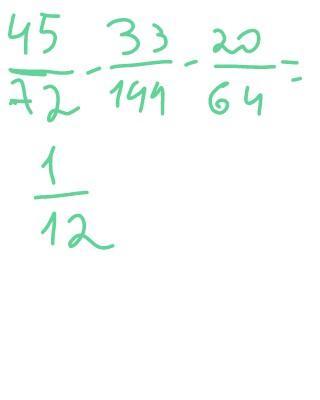 45/72 - 33/144 - 20/64 =
1/12